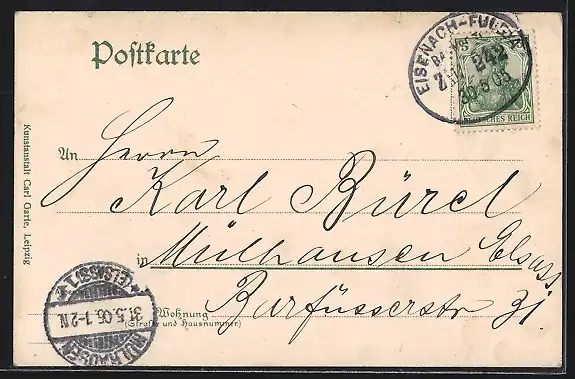 Postkarte
EISENACH-FULDA
ZUG 242
30 5 06
DEUTSCHES REICH
An Herrn
Karl Bürel
in Mülhausen Elsass
Wohnung Barfüsserstr 31.
(Straße und Hausnummer)
Kunstanstalt Carl Garte, Leipzig
MÜLHAUSEN
31.5.06. 1-2 N.
* (ELSASS) 1. *